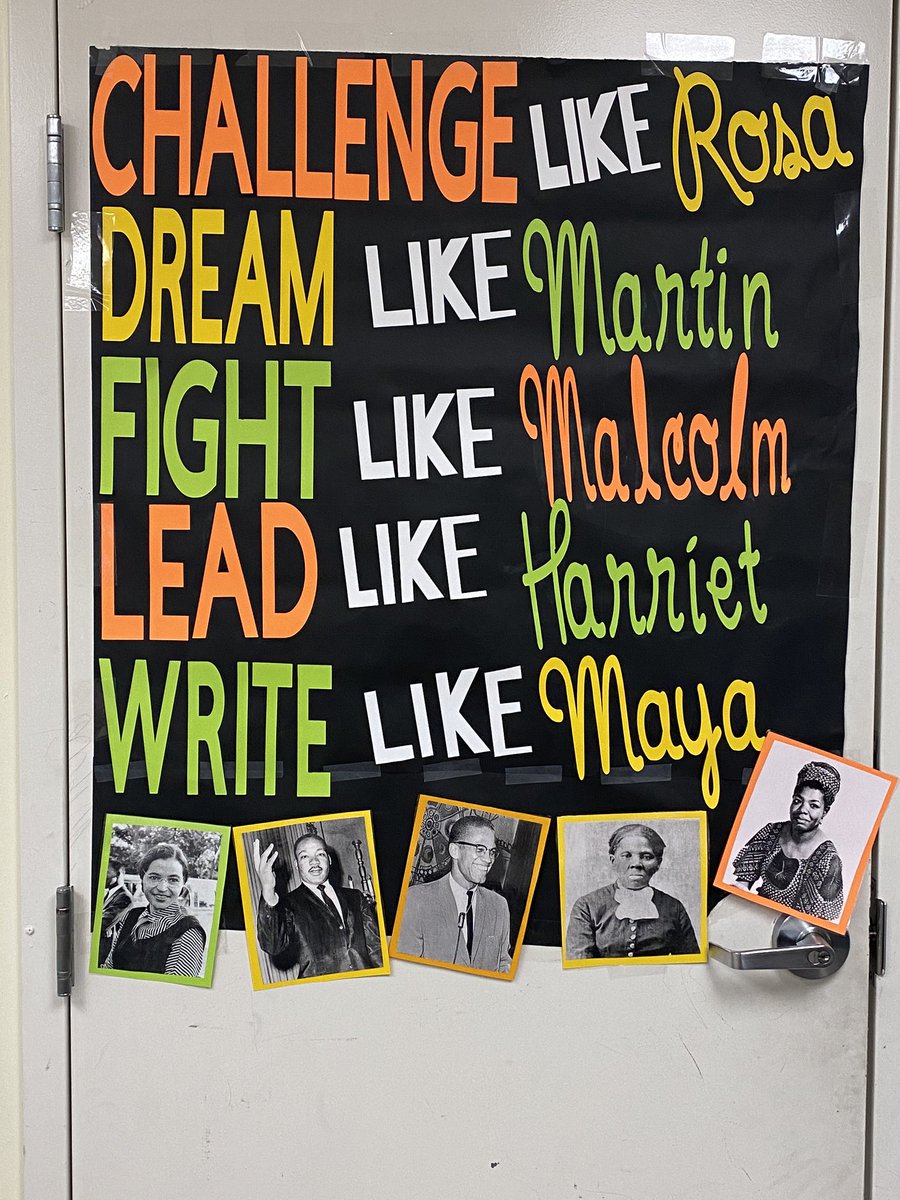 CHALLENGE LIKE Rosa
DREAM LIKE Martin
FIGHT LIKE Malcolm
LEAD LIKE Harriet
WRITE LIKE Maya